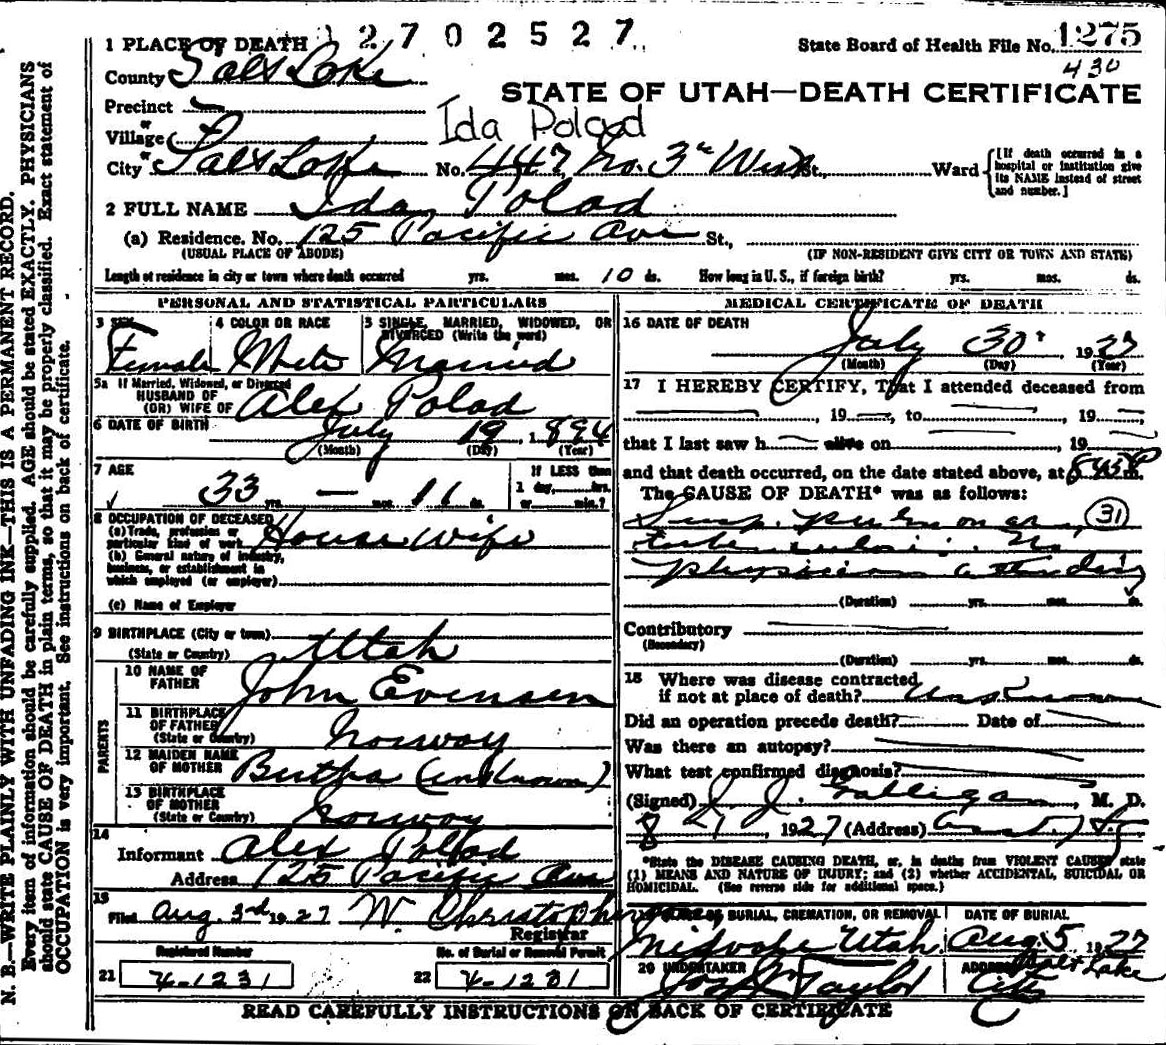 12702527
1 PLACE OF DEATH
State Board of Health File No. 1275
430
County Salt Lake
STATE OF UTAH—DEATH CERTIFICATE
Precinct
Ida Polad
Village
City Salt Lake No. 447 No. 3rd West St., Ward
[If death occurred in a hospital or institution give its NAME instead of street and number.]
2 FULL NAME Ida Polad
(a) Residence. No. 125 Pacific Ave St.,
(USUAL PLACE OF ABODE) (IF NON-RESIDENT GIVE CITY OR TOWN AND STATE)
Length of residence in city or town where death occurred yrs. mos. 10 ds. How long in U. S., if foreign birth? yrs. mos. ds.
PERSONAL AND STATISTICAL PARTICULARS
3 SEX 4 COLOR OR RACE 5 SINGLE, MARRIED, WIDOWED, OR DIVORCED (Write the word)
Female White Married
5a If Married, Widowed, or Divorced
HUSBAND OF
(OR) WIFE OF Alex Polad
6 DATE OF BIRTH July 19, 1894
(Month) (Day) (Year)
7 AGE
If LESS than
1 day, hrs.
or min.?
33 yrs. — mos. 11 ds.
8 OCCUPATION OF DECEASED
(a) Trade, profession or
particular kind of work House wife
(b) General nature of industry,
business, or establishment in
which employed (or employer)
(c) Name of Employer
9 BIRTHPLACE (City or town)
(State or Country) Utah
PARENTS
10 NAME OF FATHER John Evensen
11 BIRTHPLACE OF FATHER
(State or Country) Norway
12 MAIDEN NAME OF MOTHER Bertha (unknown)
13 BIRTHPLACE OF MOTHER
(State or Country) Norway
14
Informant Alex Polad
Address 125 Pacific Ave
15
Filed Aug. 3rd 1927 W. Christopherson
Registrar
Registered Number No. of Burial or Removal Permit
21 4-1231 22 4-1231
MEDICAL CERTIFICATE OF DEATH
16 DATE OF DEATH
July 30, 1927
(Month) (Day) (Year)
17 I HEREBY CERTIFY, That I attended deceased from
, 19 , to , 19
that I last saw h alive on , 19
and that death occurred, on the date stated above, at m.
The CAUSE OF DEATH* was as follows:
pulmonary 31
tuberculosis. No
physician attending
(Duration) yrs. mos. ds.
Contributory
(Secondary)
(Duration) yrs. mos. ds.
18 Where was disease contracted
if not at place of death? unknown
Did an operation precede death? Date of
Was there an autopsy?
What test confirmed diagnosis?
(Signed) J. J. Galligan, M. D.
8 2, 1927 (Address)
*State the DISEASE CAUSING DEATH, or, in deaths from VIOLENT CAUSES, state
(1) MEANS AND NATURE OF INJURY; and (2) whether ACCIDENTAL, SUICIDAL OR
HOMICIDAL. (See reverse side for additional space.)
OF BURIAL, CREMATION, OR REMOVAL DATE OF BURIAL
Midvale Utah Aug. 5 1927
20 UNDERTAKER ADDRESS
Jos. Wm Taylor Salt Lake City
READ CAREFULLY INSTRUCTIONS ON BACK OF CERTIFICATE
N. B.—WRITE PLAINLY WITH UNFADING INK—THIS IS A PERMANENT RECORD.
Every item of information should be carefully supplied. AGE should be stated EXACTLY. PHYSICIANS
should state CAUSE OF DEATH in plain terms, so that it may be properly classified. Exact statement of
OCCUPATION is very important. See instructions on back of certificate.